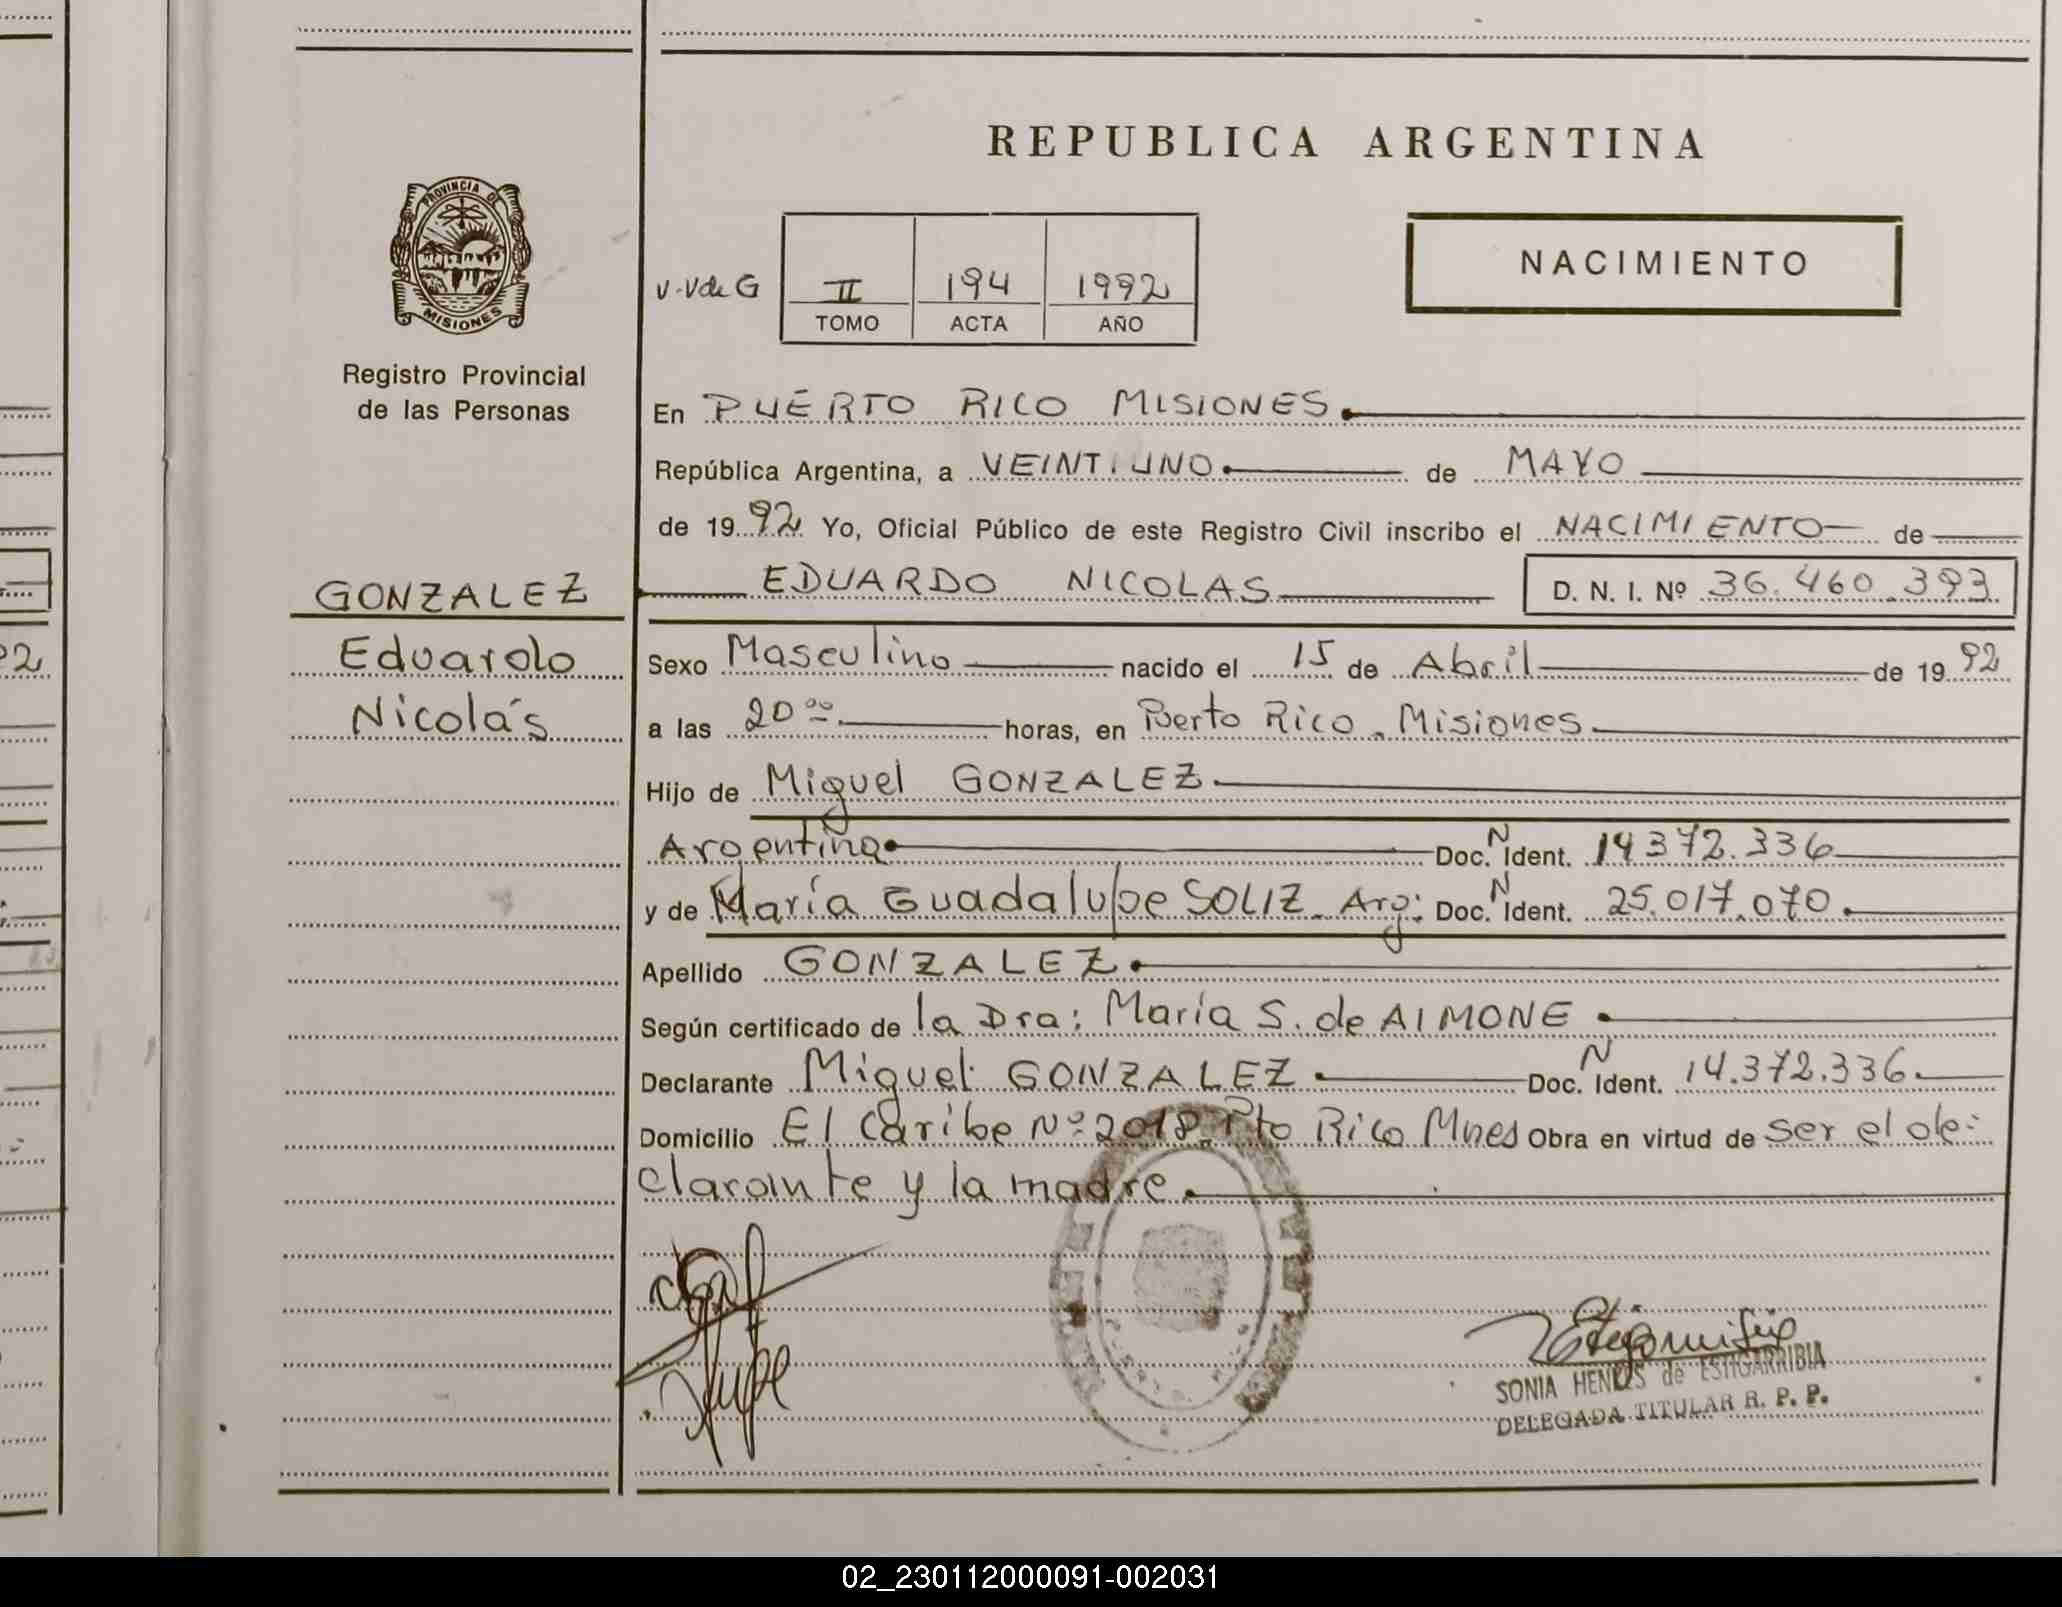 REPUBLICA ARGENTINA
PROVINCIA DE
MISIONES
Registro Provincial
de las Personas
V. V de G
II 194 1992
TOMO ACTA AÑO
NACIMIENTO
En PUERTO RICO MISIONES.
República Argentina, a VEINTIUNO. de MAYO
de 19 92 Yo, Oficial Público de este Registro Civil inscribo el NACIMIENTO de
GONZALEZ
Eduardo
Nicolás
EDUARDO NICOLAS D. N. I. Nº 36.460.393
Sexo Masculino nacido el 15 de Abril de 19 92
a las 20 00 horas, en Puerto Rico. Misiones
Hijo de Miguel GONZALEZ
Argentina Doc. N Ident. 14372.336
y de María Guadalupe SOLIZ. Arg: Doc. N Ident. 25.017.070.
Apellido GONZALEZ
Según certificado de la Dra: María S. de AIMONE.
Declarante Miguel GONZALEZ Doc. N Ident. 14.372.336.
Domicilio El Caribe Nº 2018. Pto Rico Mnes Obra en virtud de ser el de-
clarante y la madre.
SONIA HENDES de ESTIGARRIBIA
DELEGADA TITULAR R. P. P.
02_230112000091-002031